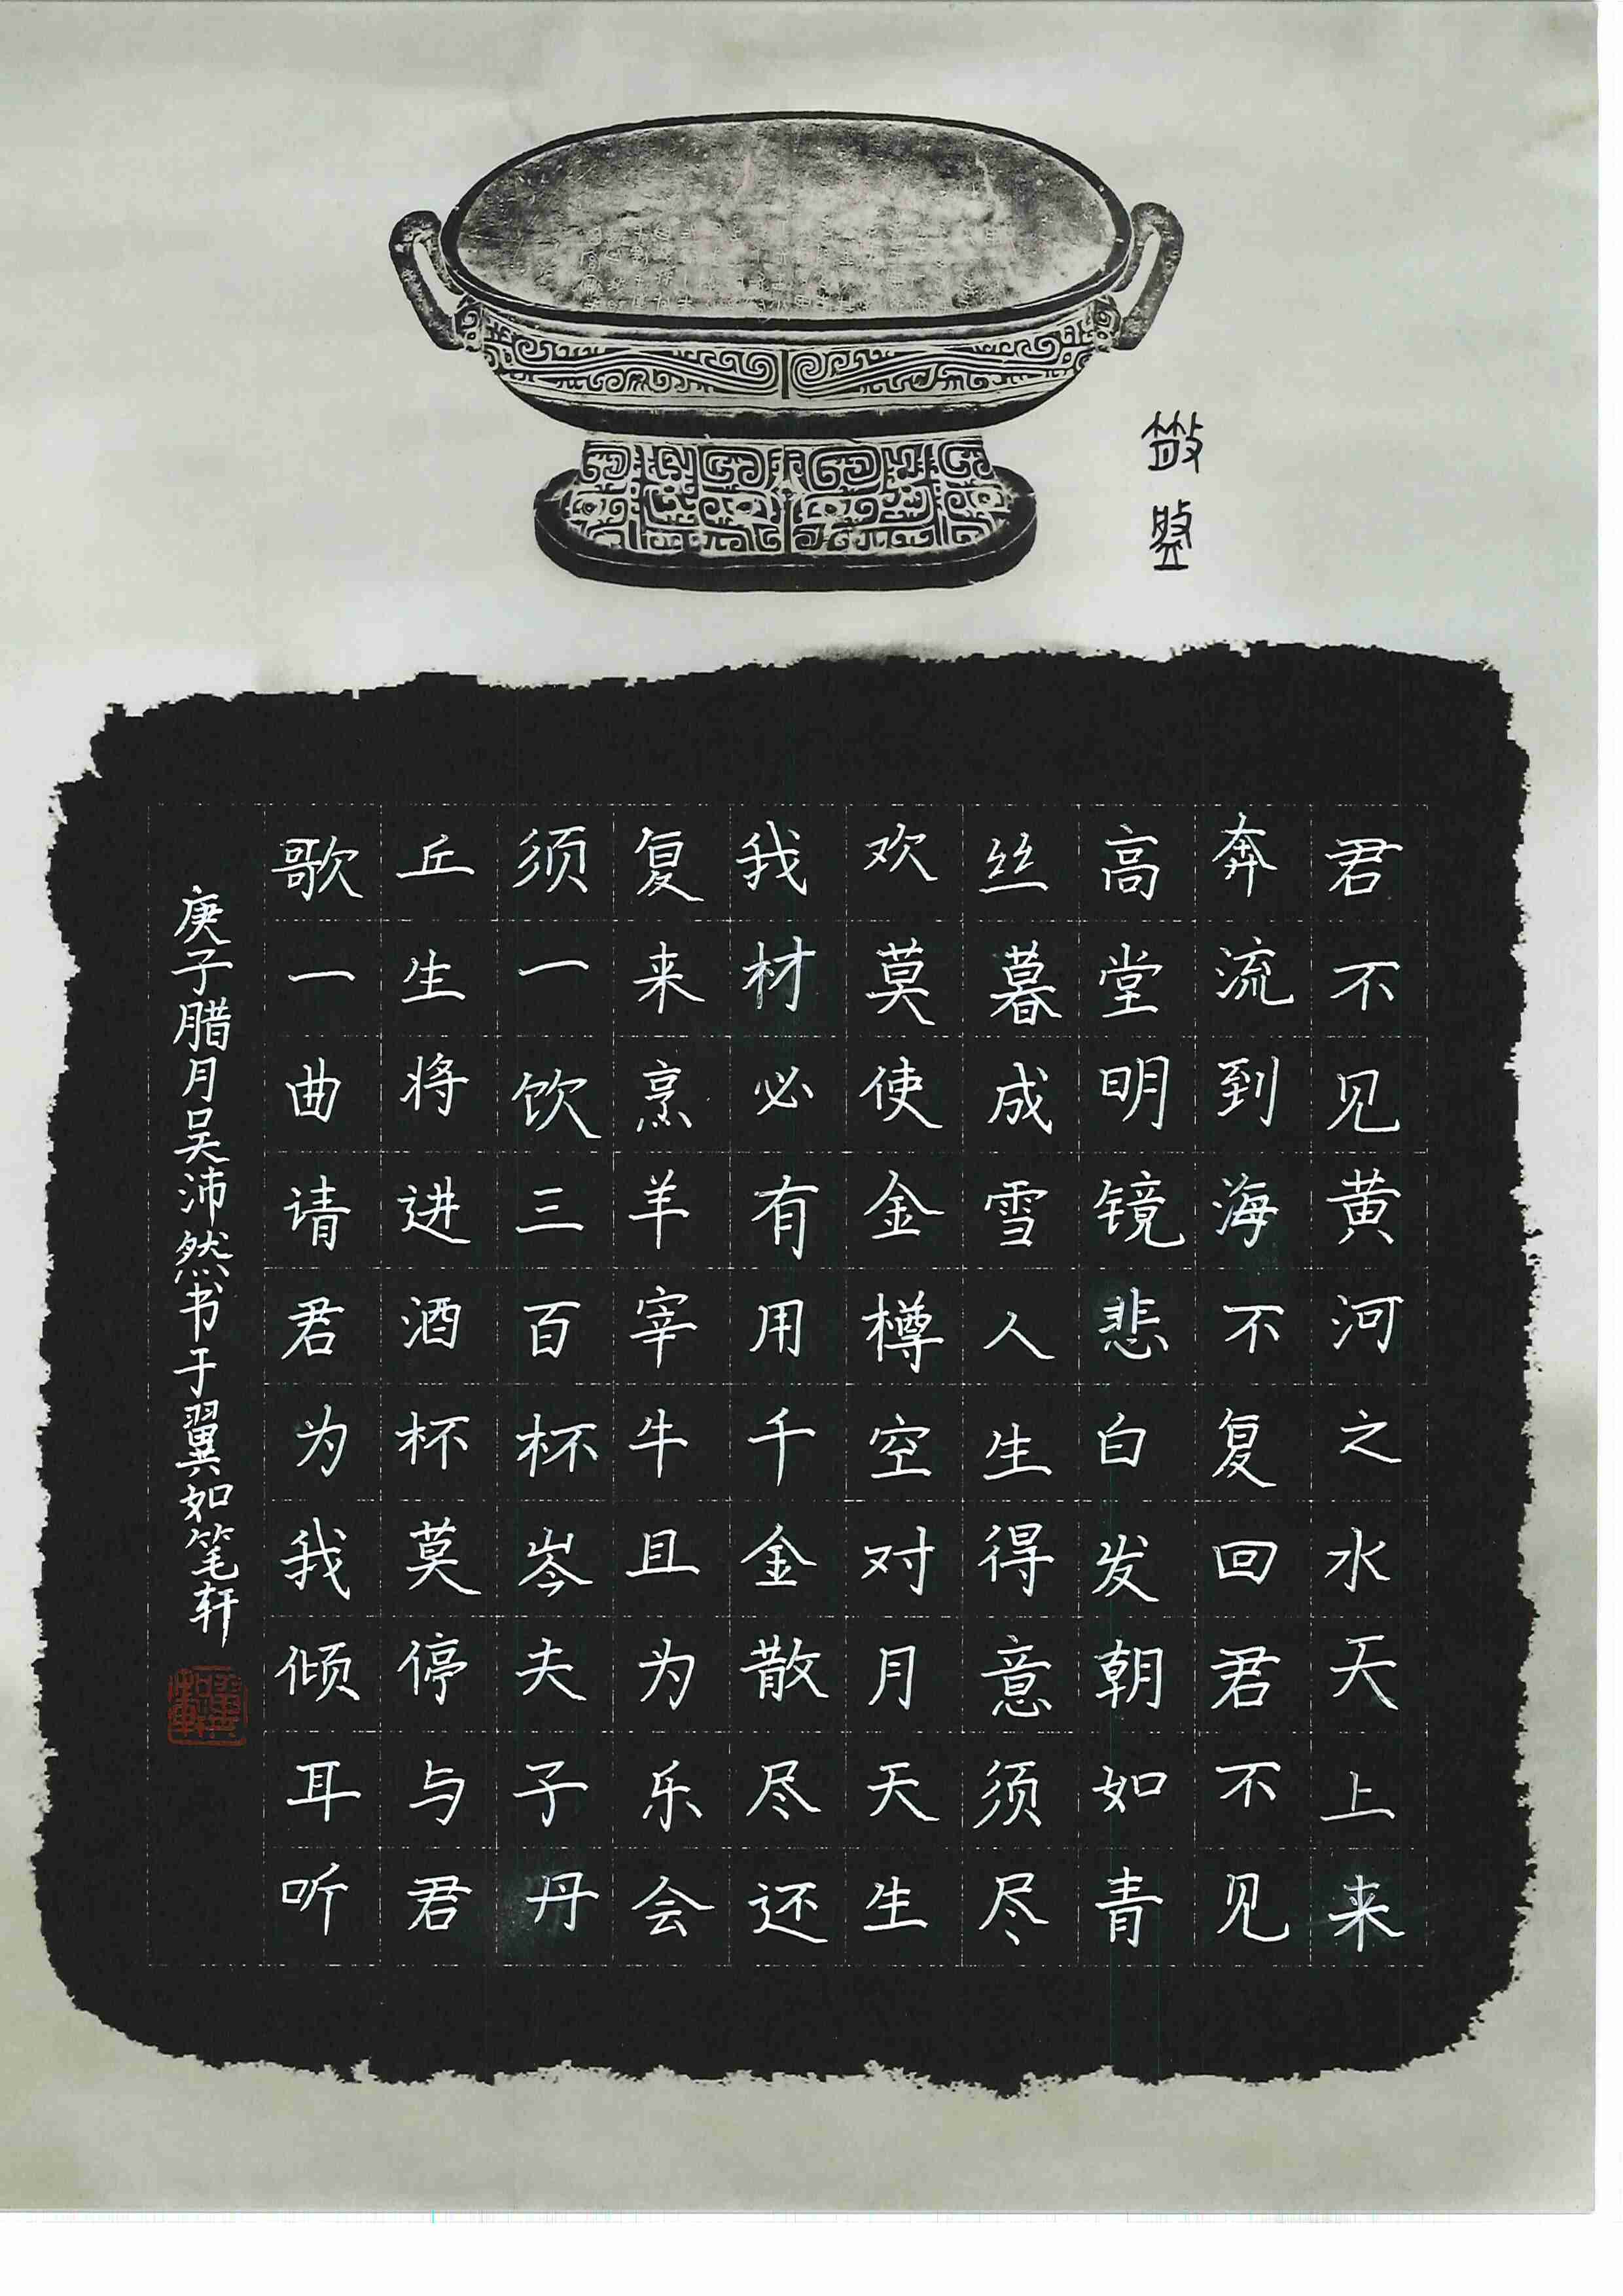 散盤
君不见黄河之水天上来
奔流到海不复回君不见
高堂明镜悲白发朝如青
丝暮成雪人生得意须尽
欢莫使金樽空对月天生
我材必有用千金散尽还
复来烹羊宰牛且为乐会
须一饮三百杯岑夫子丹
丘生将进酒杯莫停与君
歌一曲请君为我倾耳听
庚子腊月吴沛然书于翼如笔轩